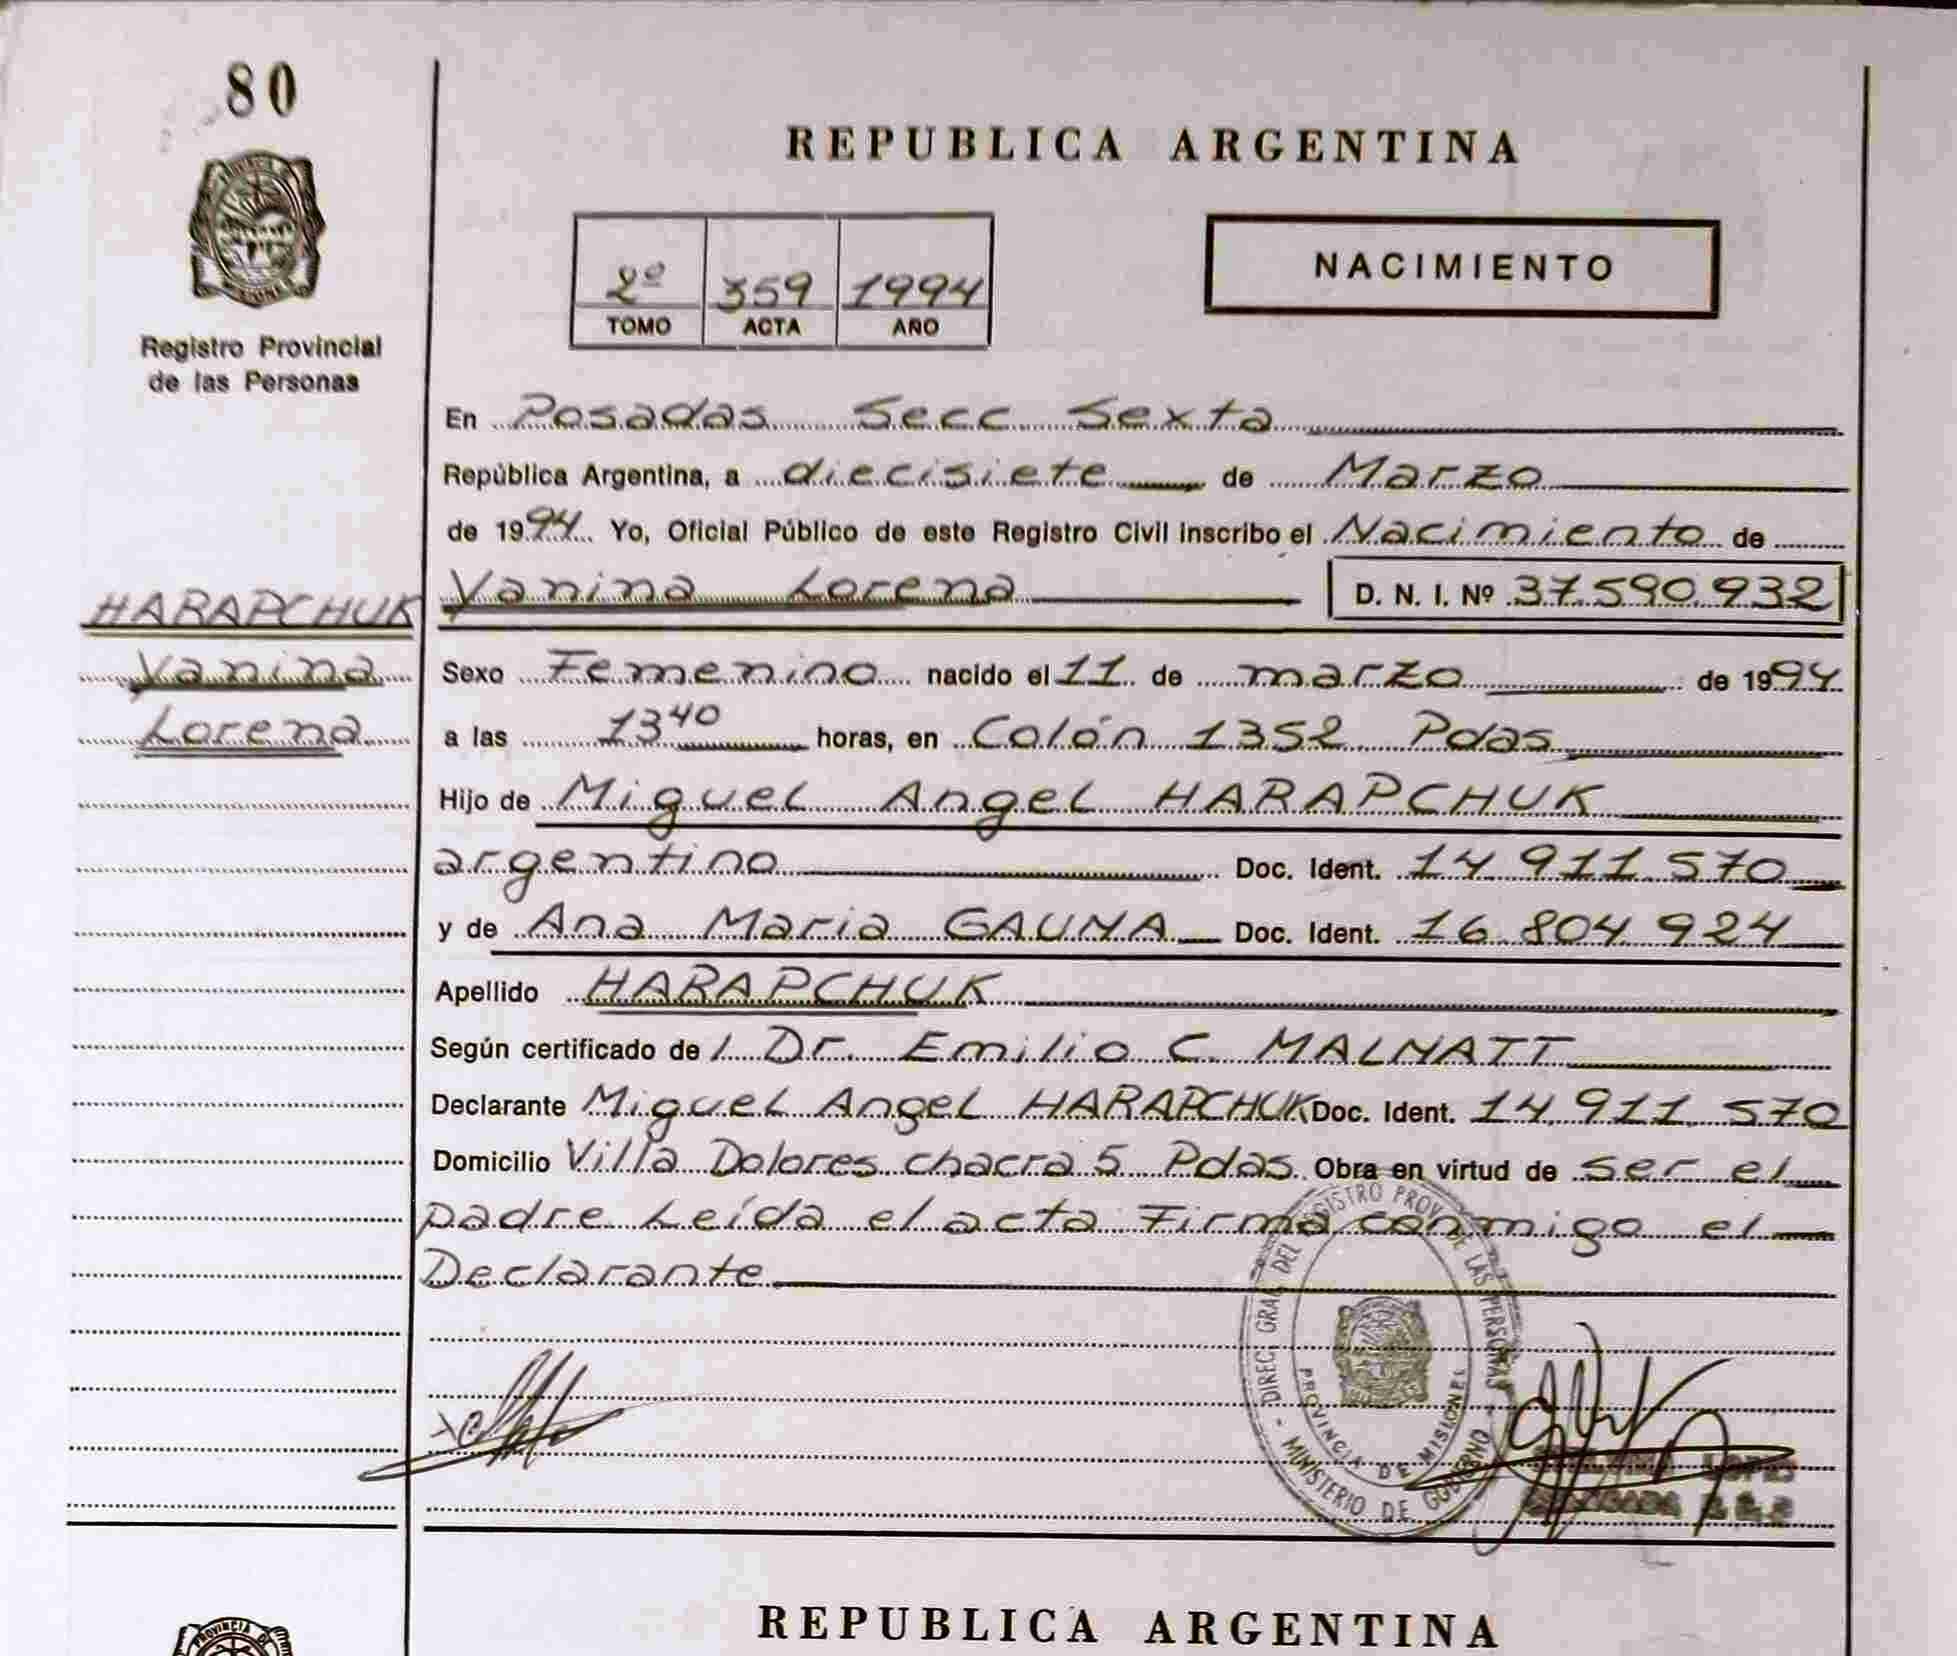 80
REPUBLICA ARGENTINA
2º 359 1994
TOMO ACTA AÑO
NACIMIENTO
Registro Provincial
de las Personas
En Posadas Secc Sexta
República Argentina, a diecisiete de Marzo
de 1994. Yo, Oficial Público de este Registro Civil inscribo el Nacimiento de
HARAPCHUK
Vanina
Lorena
Vanina Lorena D. N. I. Nº 37.590.932
Sexo Femenino nacido el 11 de marzo de 1994
a las 13 40 horas, en Colón 1352 Pdas
Hijo de Miguel Angel HARAPCHUK
argentino Doc. Ident. 14 911 570
y de Ana Maria GAUNA Doc. Ident. 16 804 924
Apellido HARAPCHUK
Según certificado de / Dr. Emilio C. MALNATT
Declarante Miguel Angel HARAPCHUK Doc. Ident. 14.911.570
Domicilio Villa Dolores chacra 5 Pdas. Obra en virtud de ser el
padre Leída el acta Firma conmigo el
Declarante
DIREC. GRAL. DEL REGISTRO PROV. DE LAS PERSONAS
PROVINCIA DE MISIONES
MINISTERIO DE GOBIERNO
LOPES
REPUBLICA ARGENTINA
PROVINCIA DE